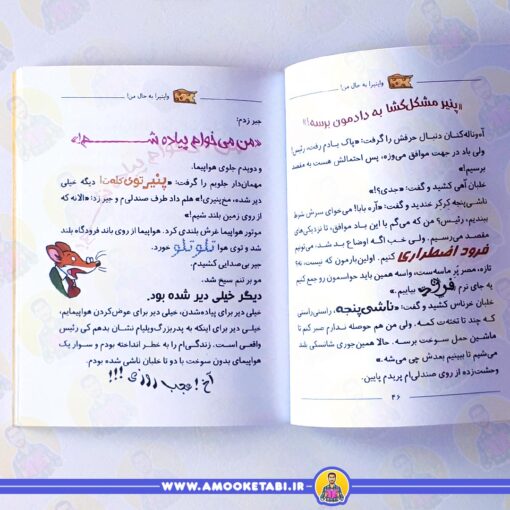 واپنیرا به حال من!
«پنیر مشکل‌گشا به دادمون برسه!»
آه‌وناله‌کنان دنبال حرفش را گرفت: «پاک یادم رفت، رئیس!
ولی باد در جهت موافق می‌وزه، پس احتمالش هست به مقصد
برسیم!»
خلبان آهی کشید و گفت: «جدی؟!»
ناشی‌پنجه کرکر خندید و گفت: «آره بابا! می‌خوای سرش شرط
ببندیم، رئیس؟ من که می‌گم با این باد موافق، تا نزدیکی‌های
مقصد می‌رسیم. ولی خب اگه اوضاع بد شد، می‌تونیم
فرود اضطراری کنیم. اولین‌بارمون که نیست، نه؟
تازه، مصر پُر ماسه‌ست، واسه همین باید حواسمون رو جمع کنیم
یه جای نرم فرود بیاییم.»
خلبان خرناس کشید و گفت: «ناشی‌پنجه، راستی‌راستی
که چند تا تخته‌ت کمه. ولی من هم حوصله ندارم صبر کنم تا
ماشین حمل سوخت برسه. حالا همین‌جوری شانسکی بلند
می‌شیم تا ببینیم بعدش چی می‌شه.»
وحشت‌زده از روی صندلی‌ام پریدم پایین.
۴۶
واپنیرا به حال من!
جیر زدم:
«من می‌خوام پیاده شـــــم!»
و دویدم جلوی هواپیما.
مهمان‌دار جلویم را گرفت: «پنیر توی کله‌ت! دیگه خیلی
دیر شده، من‌پنیری!» هلم داد طرف صندلی‌ام و جیر زد: «الانه که
از روی زمین بلند شیم!»
موتور هواپیما غرش بلندی کرد. هواپیما از روی باند فرودگاه بلند
شد و توی هوا تلوتلو خورد.
جیر بی‌صدایی کشیدم.
مو بر تنم سیخ شد.
دیگر خیلی دیر شده بود.
خیلی دیر برای پیاده‌شدن، خیلی دیر برای عوض‌کردن هواپیمایم،
خیلی دیر برای اینکه به پدربزرگ‌ویلیام نشان بدهم کی رئیس
واقعی است. زندگی‌ام را به خطر انداخته بودم و سوار یک
هواپیمای بدون سوخت با دو تا خلبان ناشی شده بودم.
آخ! عجب روزی!!!
WWW.AMOOKETABI.IR